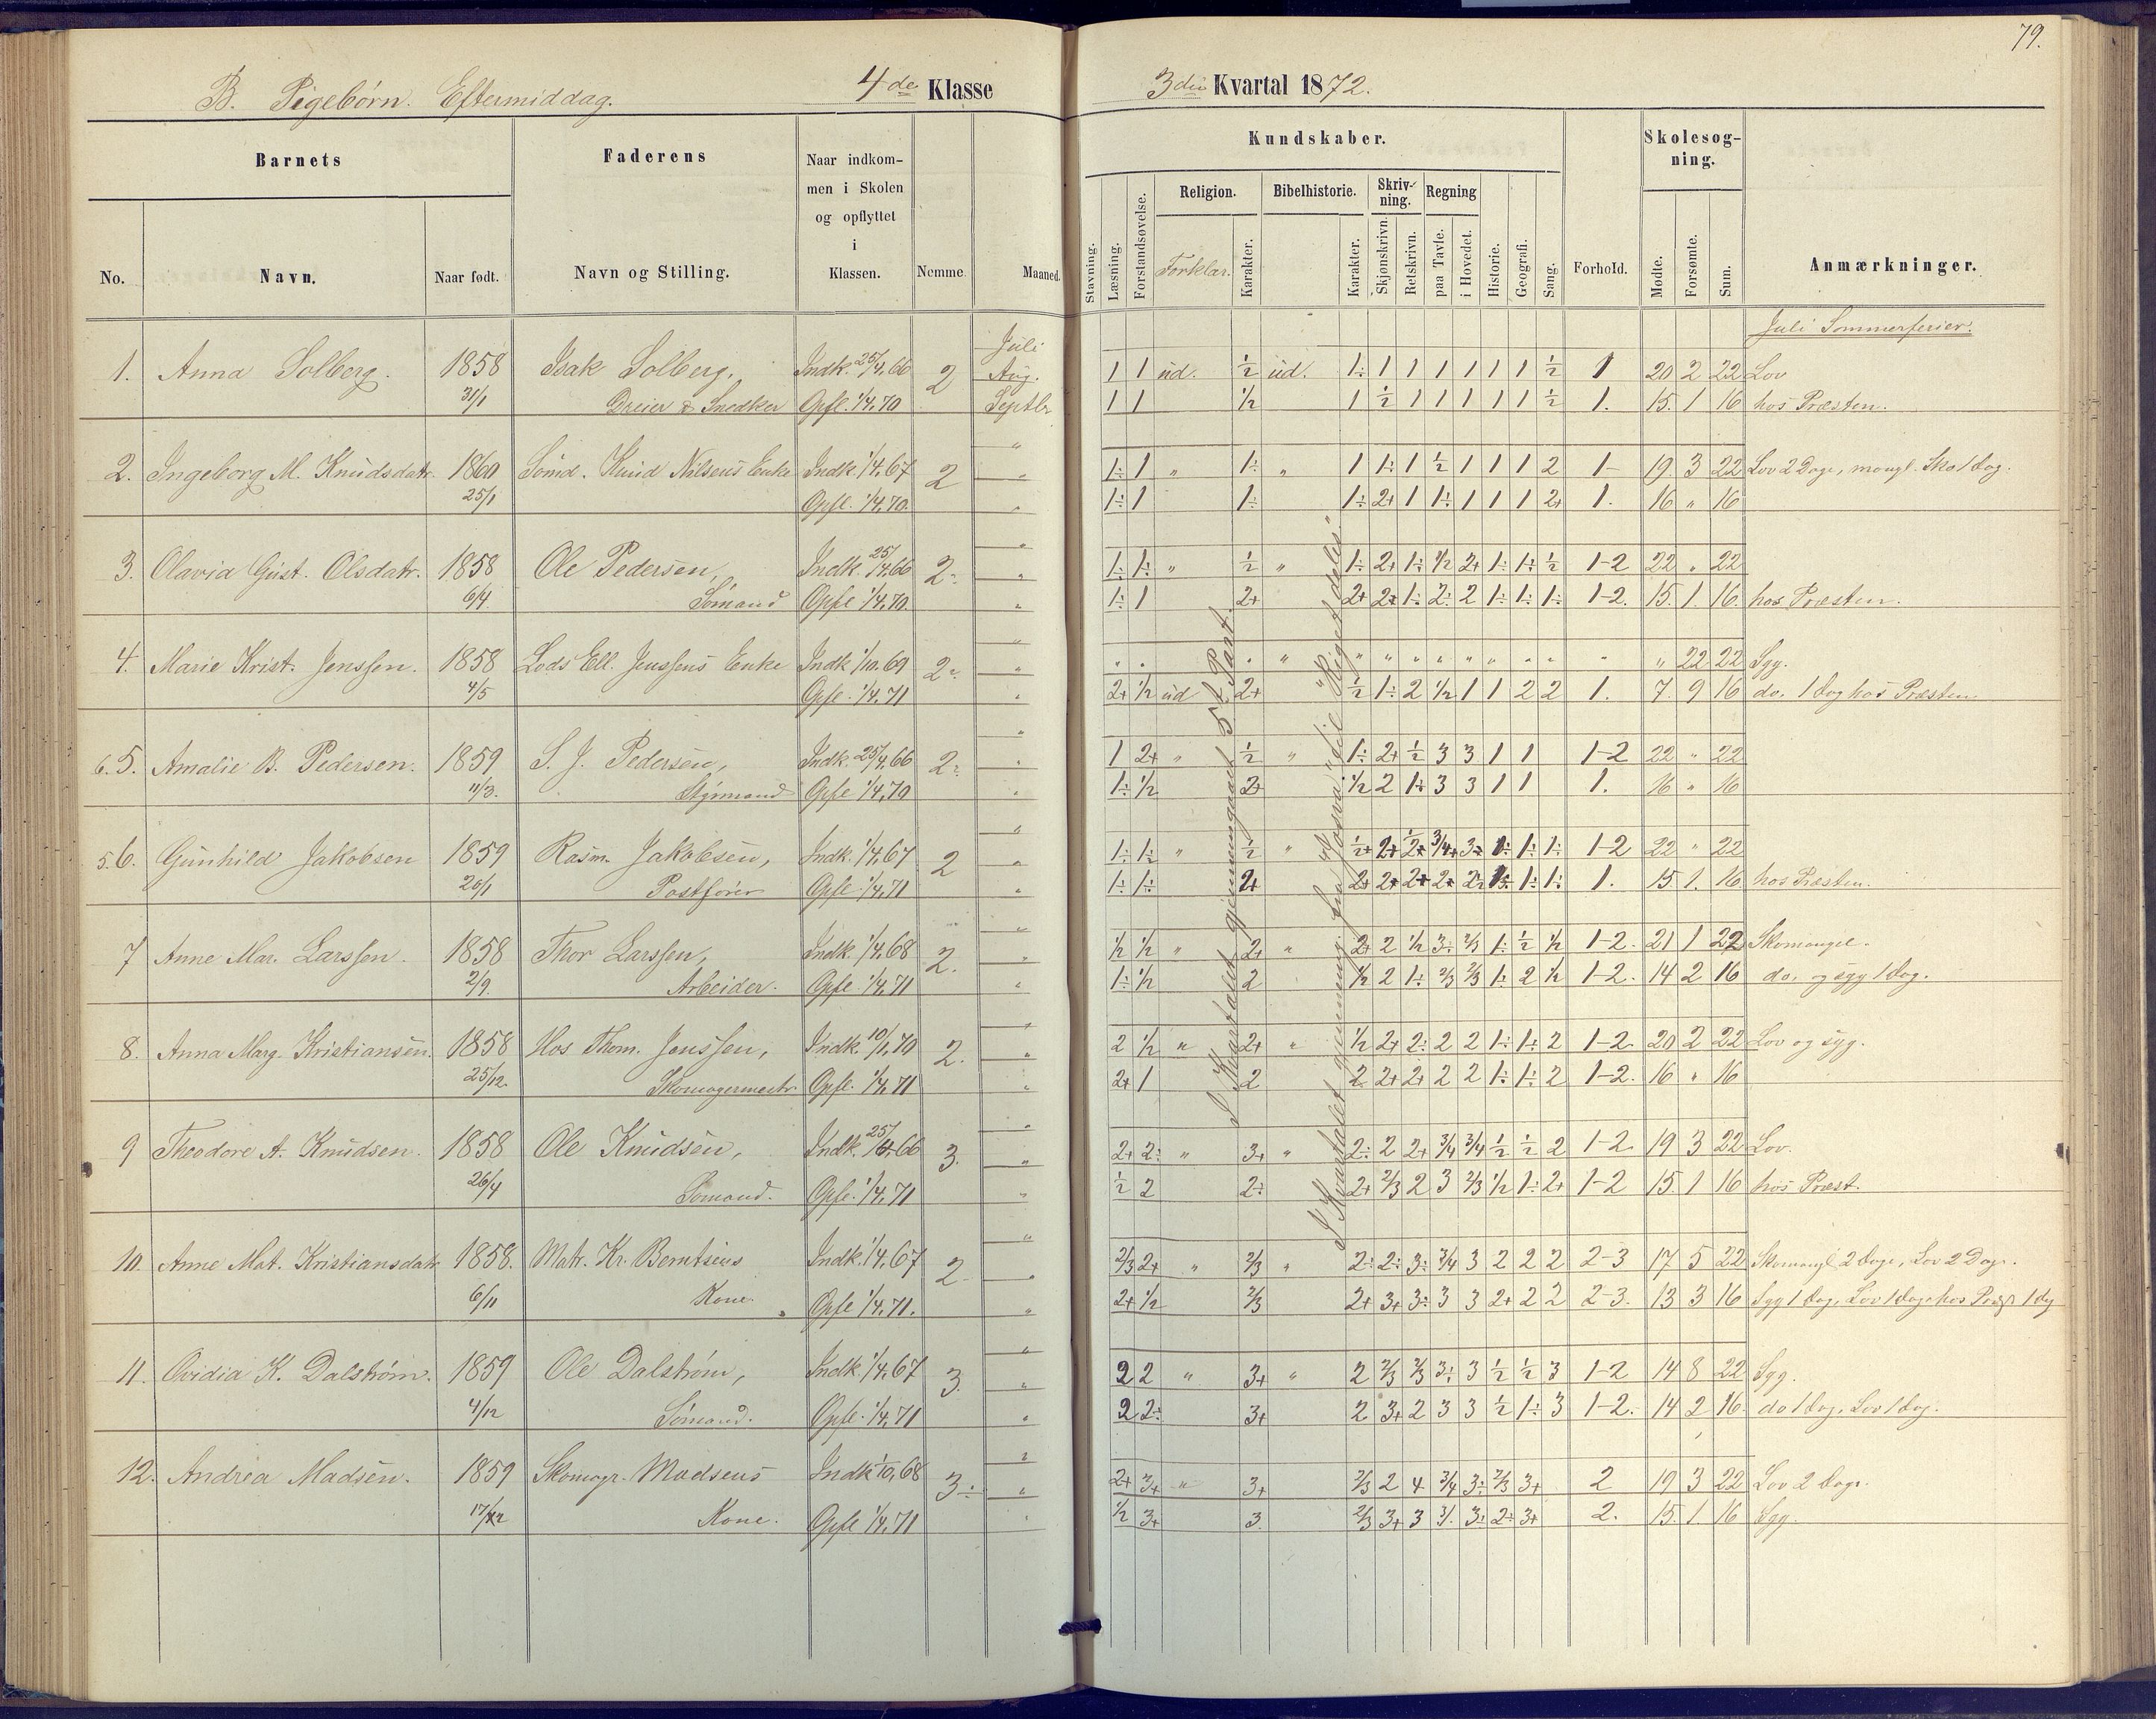 79.
B. Pigebørn. Eftermiddag. 4de Klasse 3die Kvartal 1872.
Barnets Faderens Naar indkommen i Skolen og opflyttet i Klassen. Nemme. Maaned. Kundskaber. Forhold. Skolesøgning. Anmærkninger.
No. Navn. Naar født. Navn og Stilling.
Stavning. Læsning. Forstandsøvelse. Religion. Forklar. Karakter. Bibelhistorie. Karakter. Skrivning. Skjønskrivn. Retskrivn. Regning paa Tavle. i Hovedet. Historie. Geografi. Sang. Mødte. Forsømte. Sum.
Juli Juli Sommerferier.
1. Anna Solberg. 1858 Isak Solberg, Indk. 25/4, 66 2 Aug. 1 1 ud. 1/2 ud. 1÷ 1 1 1 1 1 1 1/2 1 20 2 22 Lov
31/1 Dreier & Snedker Opfl. 1/4, 70 Septbr 1 1 1/2 1 1/2 1 1 1 1 1 1/2 1. 15. 1 16 hos Præsten.
2. Ingeborg M. Knudsdatr. 1860 Sømd. Knud Nilsens Enke Indk. 1/4, 67 2 " 1÷ 1 " 1÷ " 1 1÷ 1 1/2 1 1 1 2 1- 19 3 22 Lov 2 Dage, mangl. Sko 1 Dag.
25/1 Opfl. 1/4, 70. " 1÷ 1 1÷ 1÷ 2+ 1 1÷ 1 1 1 2+ 1. 16 " 16
3. Olavia Gust. Olsdatr. 1858 Ole Pedersen, Indk. 25/4, 66 2÷ " 1÷ 1÷ " 1/2 " 1÷ 2+ 1÷ 1/2 2+ 1÷ 1÷ 1/2 1-2 22 " 22
6/4. Sømand Opfl 1/4, 70. " 1÷ 1 2+ 2+ 2+ 1÷ 2÷ 2 1÷ 1÷ 1÷ 1-2. 15. 1. 16. hos Præsten.
4. Marie Krist. Jenssen. 1858 Lods Ell. Jenssens Enke Indk 1/10. 69 2÷ " " " " " " " " " " " " " " " " 22 22 Syg.
4/5 Opfl. 1/4, 71 " 2+ 1/2 ud 2+ 1/2 1÷ 2 1/2 1 1 2 2 1. 7. 9 16 do. 1 Dag hos Præsten
6. 5. Amalie B. Pedersen. 1859 S. J. Pedersen, Indk. 25/4, 66 2÷ " 1 2+ " 1/2 " 1÷ 2+ 1/2 3 3 1 1 1-2 22 " 22
11/3. Styrmand Opfl 1/4, 70 " 1÷ 1/2 2+ 1/2 2 1÷ 3 3 1 1 1. 16 " 16
5. 6. Gunhild Jakobsen 1859 Rasm. Jakobsen, Indk. 1/4, 67 2 " 1÷ 1÷ " 1/2 " 1-2 22 " 22
20/1 Postfører Opfl. 1/4, 71 " 1÷ 1÷ 2+ 1. 15 1. 16 hos Præsten.
7 Anne Mar. Larssen. 1858 Thor Larssen, Indk. 1/4, 68 2. " 1/2 1/2 " 2+ " 2+ 2 1/2 3÷ 2/3 1÷ 1/2 1/2 1-2. 21 1 22 Skomangel.
2/9. Arbeider. Opfl. 1/4, 71 " 1÷ 1/2 2 1/2 2 1÷ 2/3 2/3 1÷ 2 1/2 1-2. 14 2 16 do. og syg 1 Dag.
8. Anna Marg. Kristiansen. 1858 Hos Thom. Jenssen, Indk. 10/1, 70 2. " 2 1/2 " 2+ " 1/2 2+ 2÷ 2 2 1÷ 1÷ 2 1-2. 20 2 22 Lov og syg.
25/12. Skomagermestr Opfl. 1/4, 71 " 2+ 1 2 2 2+ 2+ 2 2 1÷ 1÷ 2 1-2. 16 " 16
9 Theodore A. Knudsen. 1858 Ole Knudsen, Indk. 25/4 66 3. " 2+ 2÷ " 3+ " 2÷ 2 2+ 3/4 3/4 1/2 1/2 2 1-2. 19 3 22 Lov.
26/4 Sømand. Opfl. 1/4, 71 " 1/2 2 2÷ 2+ 2/3 2 3 2/3 1/2 1÷ 2+ 1-2 15. 1 16 hos Præst.
10. Anne Mat. Kristiansdatr 1858. Matr. Kr. Berntsens Indk. 1/4, 67 2 " 2/3 2+ " 2/3 " 2÷ 2÷ 3÷ 3/4 3 2 2 2 2-3 17 5 22 Skomangl 2 Dage, Lov 2 Dage.
6/11 Kone. Opfl 1/4, 71. " 2+ 1/2 2/3 2+ 3+ 3÷ 3 3 2+ 2 2 2-3. 13 3 16 Syg 1 Dag, Lov 1 Dag, hos Præst 1 Dag
11. Ovidia K. Dalstrøm. 1859 Ole Dalstrøm, Indk. 1/4, 67 3. " 2 2 " 3+ " 2 2/3 2/3 3÷ 3 1/2 1/2 3 1-2 14 8 22 Syg.
4/12 Sømand. Opfl. 1/4, 71 " 2 2÷ 3+ 2 3+ 2 3 3 1/2 1÷ 3 1-2. 14 2 16. do 1 Dag, Lov 1 Dag.
12. Andrea Madsen. 1859 Skomagr. Madsens Indk 1/10, 68 3÷ " 2+ 3+ " 3+ 2/3 2 4 3/4 3÷ 2/3 3+ 2 19 3 22 Lov 2 Dage.
17/12 Kone. Opfl 1/4, 71 " 1/2 3+ 3. 2/3 3+ 3 3÷ 2÷ 3+ 2. 15. 1. 16 Syg.
I Kvartalet gjennemgaaet 5te Part.
I Kvartalet gjennemg. fra "Josva" til "Riget deles".